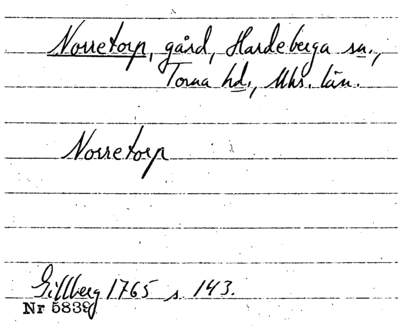 Norretorp, gård, Hardeberga sn.,
Torna hd., Mhs. län.
Norretorp
Gillberg 1765 s. 143.
Nr 5839